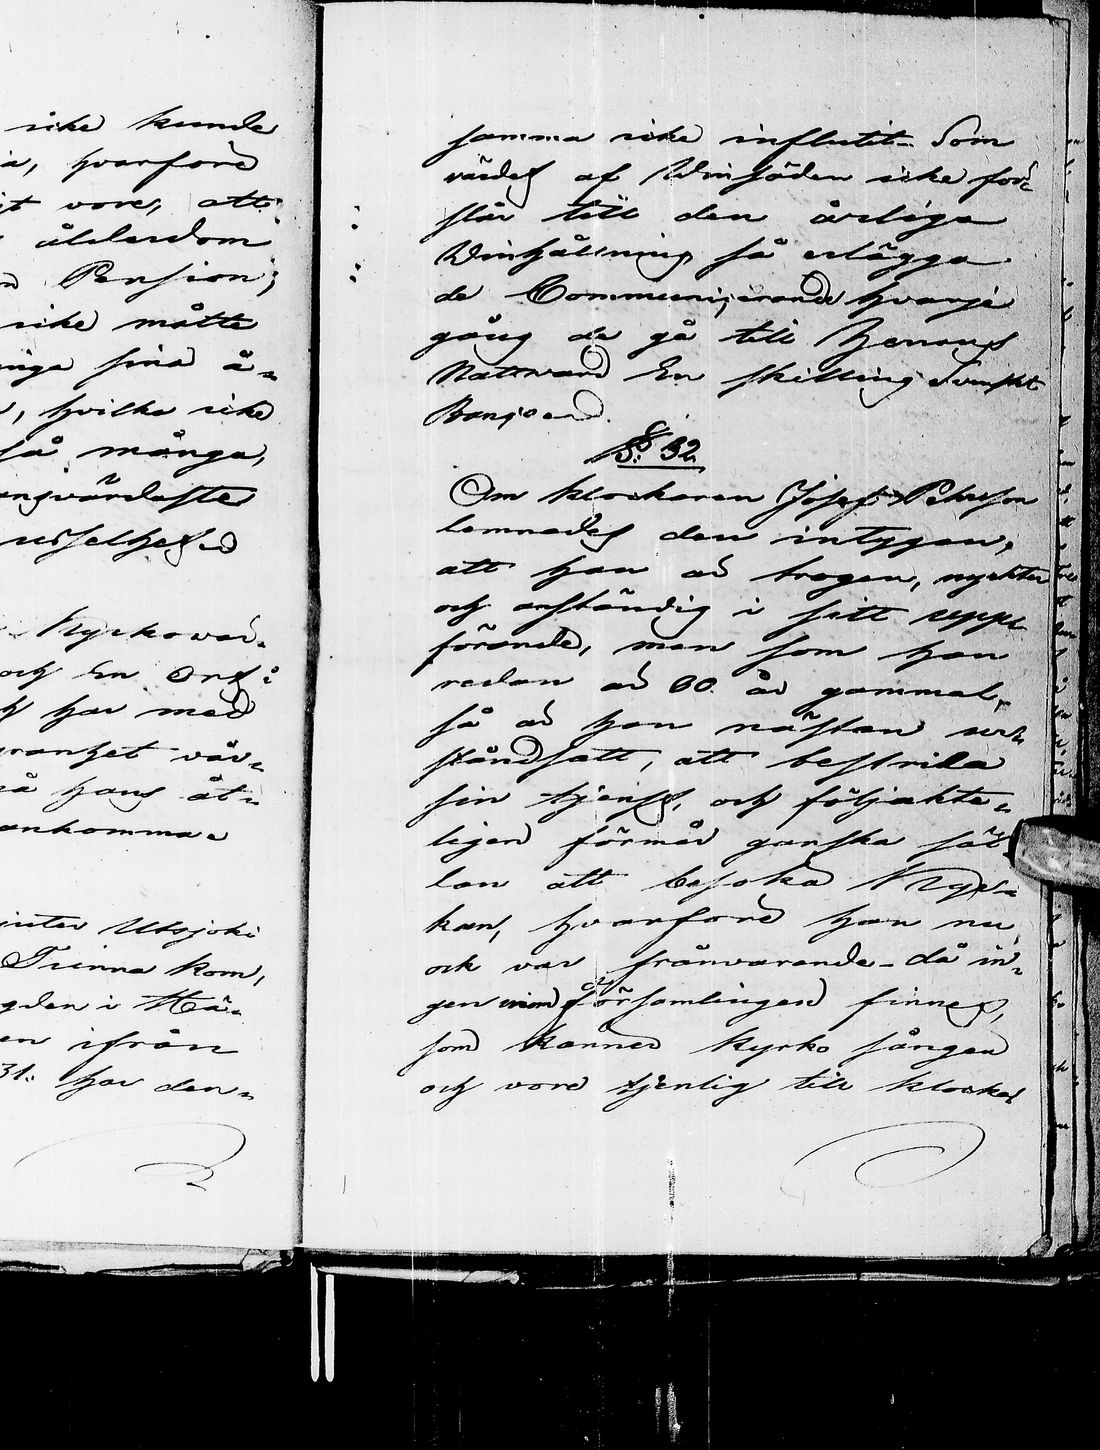 icke kunde
ia, hvarföre
igt vore, att
ålderdom
n Pension;
icke måtte
inga sina å-
, hvilka icke
så många,
angvördaste
usselhet
Kyrkovär-
och En Orgå
har med
ranhet vär-
å hans åt-
ankomma
inter Utsjoki
Tiinna kom,
gden i Mä-
en ifrån
31. har den-
samma icke influtit. Som
värdet af Winsäden icke för-
slår till den årliga
Winhållning så erlägga
de Communicerande hvarje
gång de gå till Herrans
Nattvard En skilling Svenskt
Banco
§. 32.
Om klockaren Josef Pehrson
lemnades den intygan,
att han är trogen, nykter
och anständig i sitt upp-
förande, men som han
redan är 60 år gammal,
så är han nästan ur
ståndsatt, att bestrida
sin tjenst, och följakte-
ligen förmår ganska säl-
lan att besöka Kyr-
kan, hvarföre han nu
ock var frånvarande - då in-
gen inom församlingen finnes,
som känner kyrko sången
och vore tjenlig till klocka